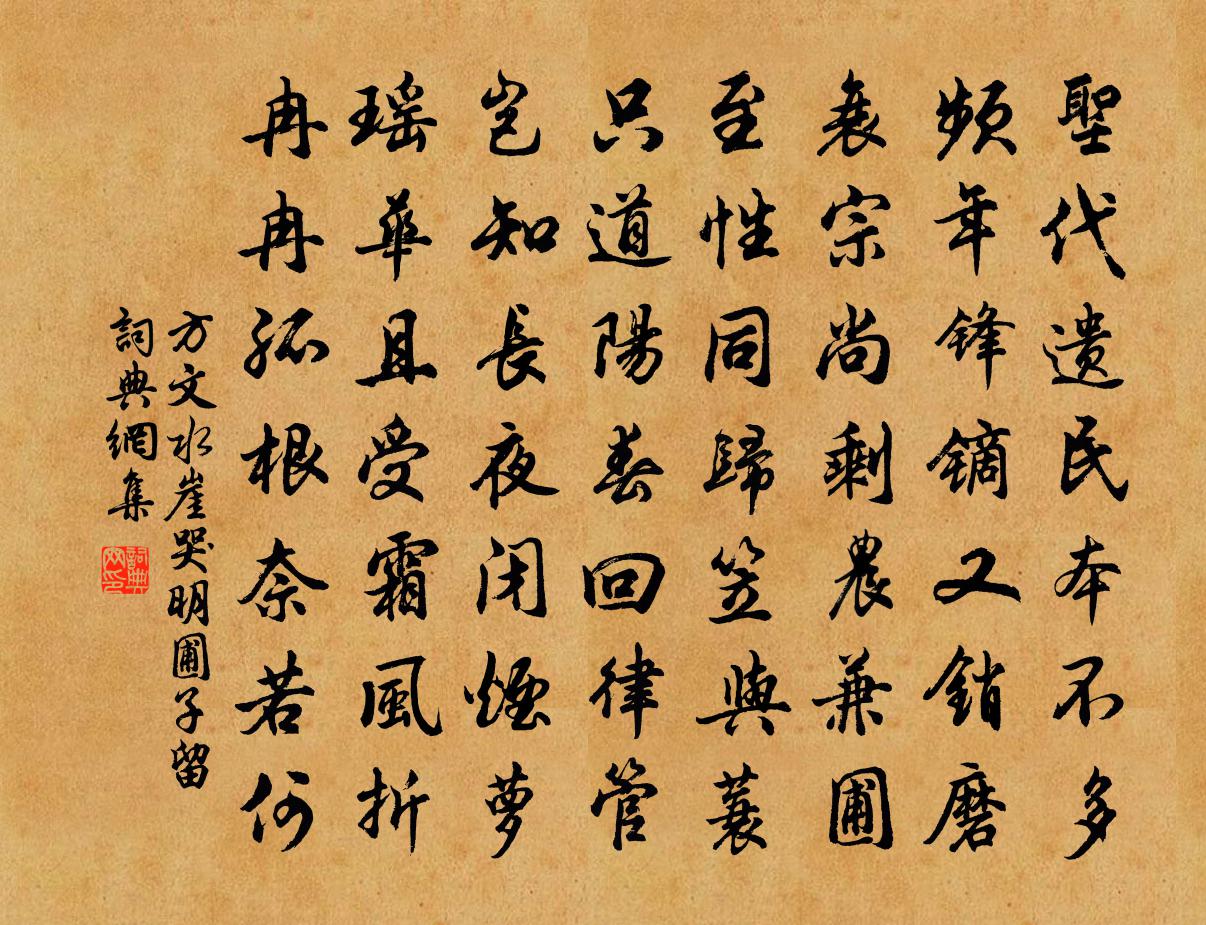 聖代遗民本不多
频年锋镝又銷磨
衰宗尚剩農兼圃
至性同歸笠與蓑
只道陽春回律管
岂知長夜闭煙萝
瑶華且受霜風折
冉冉孤根奈若何
方文水崖哭明圃子留
詞典網集
詞典网印